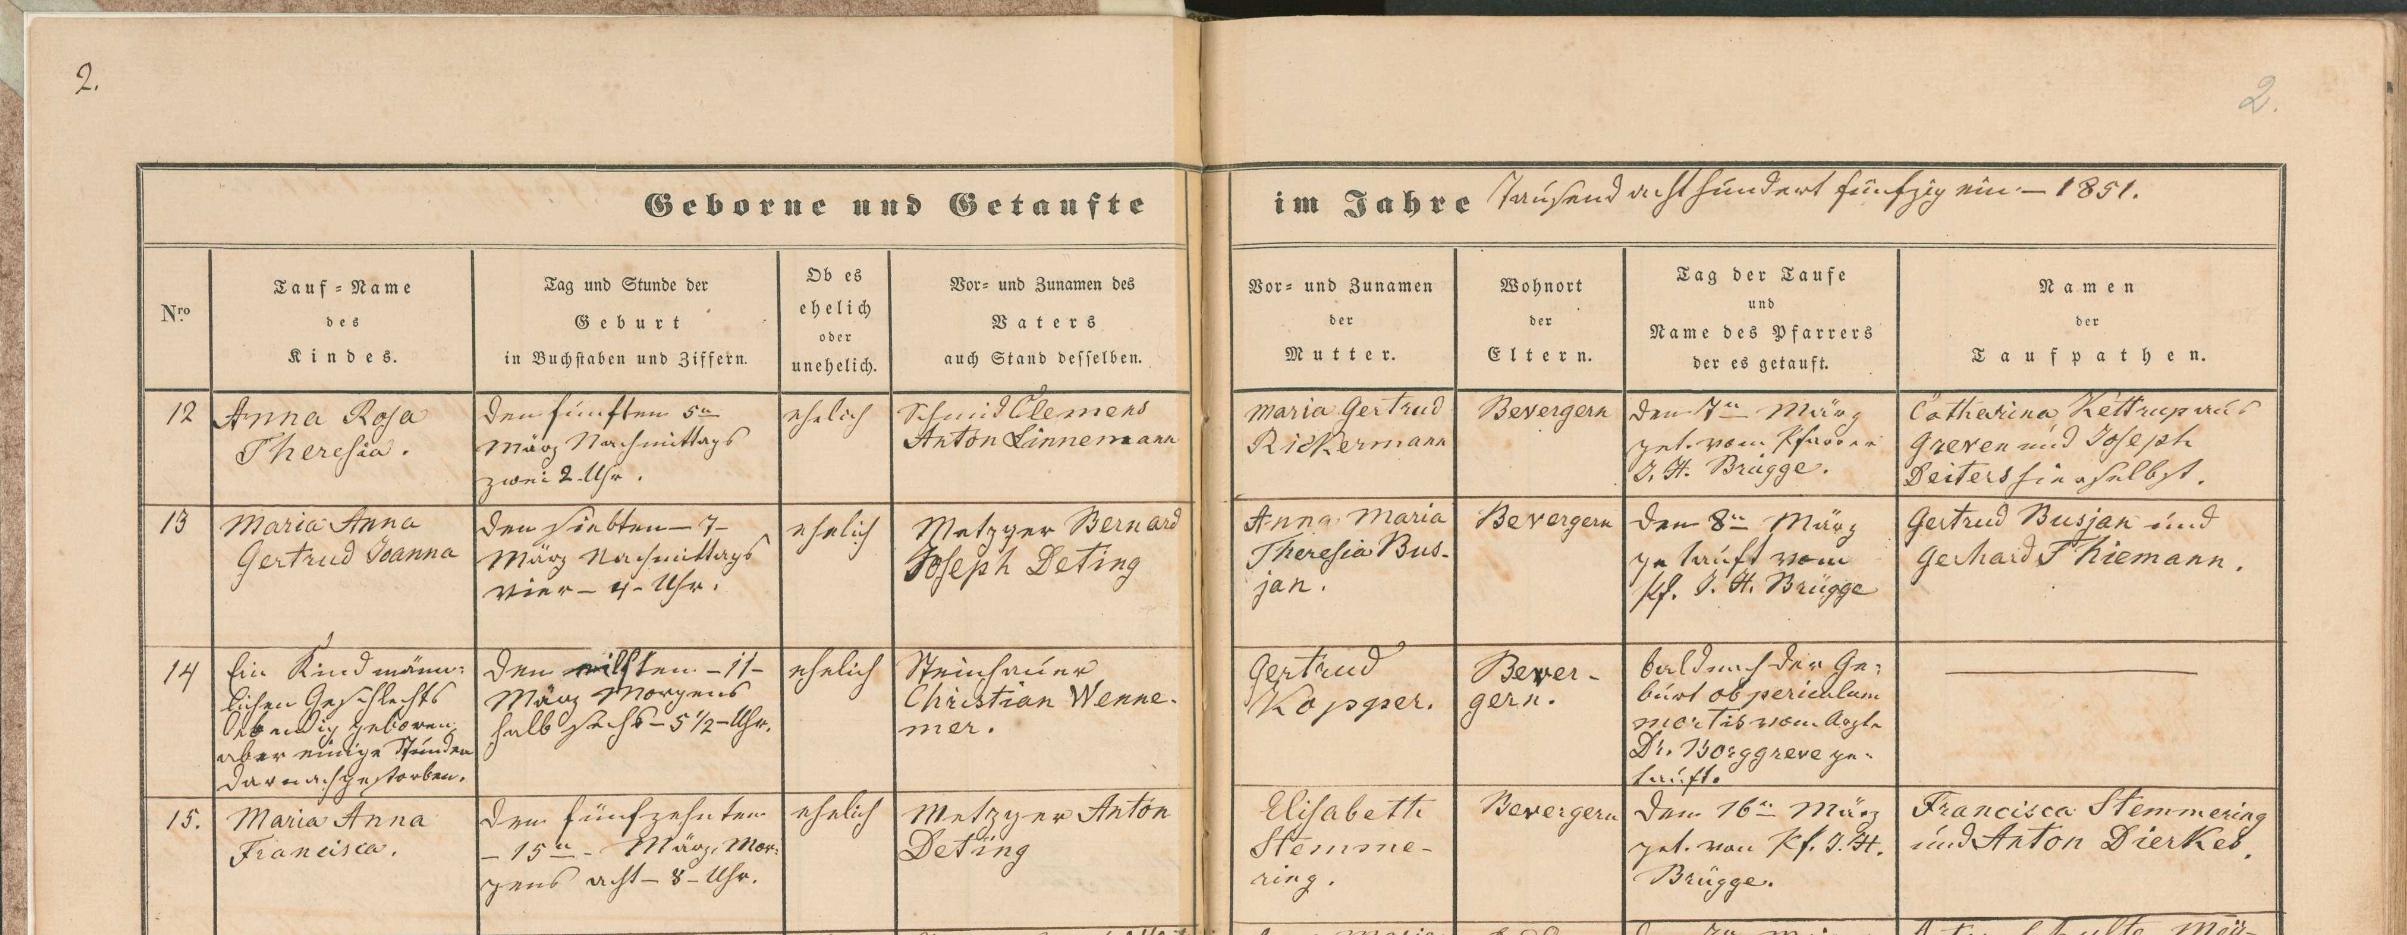 2.
2.
Geborne und Getaufte im Jahre Tausend acht hundert fünfzig ein – 1851.
Nro
Tauf-Name
des
Kindes.
Tag und Stunde der
Geburt
in Buchstaben und Ziffern.
Ob es
ehelich
oder
unehelich.
Vor- und Zunamen des
Vaters
auch Stand desselben.
Vor- und Zunamen
der
Mutter.
Wohnort
der
Eltern.
Tag der Taufe
und
Name des Pfarrers
der es getauft.
Namen
der
Taufpathen.
12
Anna Rosa
Theresia.
den fünften 5n
März Nachmittags
zwei 2 Uhr.
ehelich
Schmid Clemens
Anton Linnemann
Maria Gertrud
Rickermann
Bevergern
den 7n März
get. vom Pfarrer
J. H. Brügge.
Catharina Kettrup aus
Greven und Joseph
Deiters hierselbst.
13
Maria Anna
Gertrud Joanna
den siebten – 7 –
März Nachmittags
vier – 4 – Uhr.
ehelich
Metzger Bernard
Joseph Deting
Anna Maria
Theresia Bus-
jan.
Bevergern
den 8n März
getauft vom
Pf. J. H. Brügge
Gertrud Busjan und
Gerhard Thiemann.
14
Ein Kind männ-
lichen Geschlechts
lebendig geboren,
aber einige Stunden
darnach gestorben.
den eilften – 11 –
März Morgens
halb sechs – 5 1/2 – Uhr.
ehelich
Steinhauer
Christian Wenne-
mer.
Gertrud
Kopper.
Bever-
gern.
bald nach der Ge-
burt ob periculum
mortis vom Arzte
Dr. Borggreve ge-
tauft.
15.
Maria Anna
Francisca.
den fünfzehnten
– 15n – März, Mor-
gens acht – 8 – Uhr.
ehelich
Metzger Anton
Deting
Elisabeth
Stemme-
ring.
Bevergern
den 16n März
get. von Pf. J. H.
Brügge.
Francisca Stemmering
und Anton Dierkes.